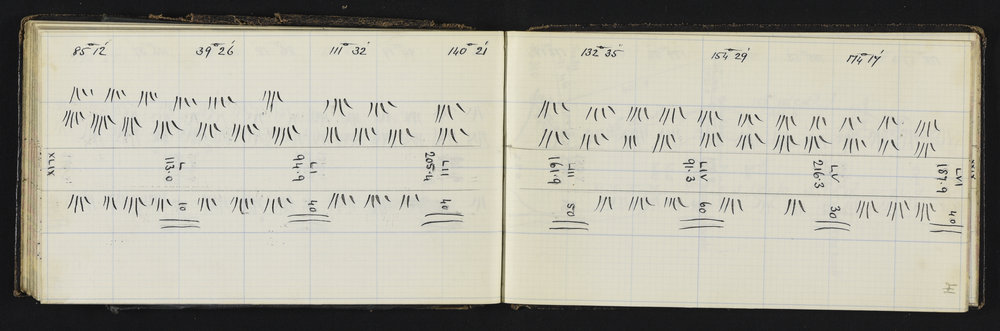 85° 12' 39° 26' 111° 32' 140° 21'
XLIX
L
113.0
LI
94.9
LII
205.4
10
40
40
132° 35' 154° 29' 174° 17'
LIII
161.9
LIV
91.3
LV
216.3
LVI
187.9
50
60
30
40